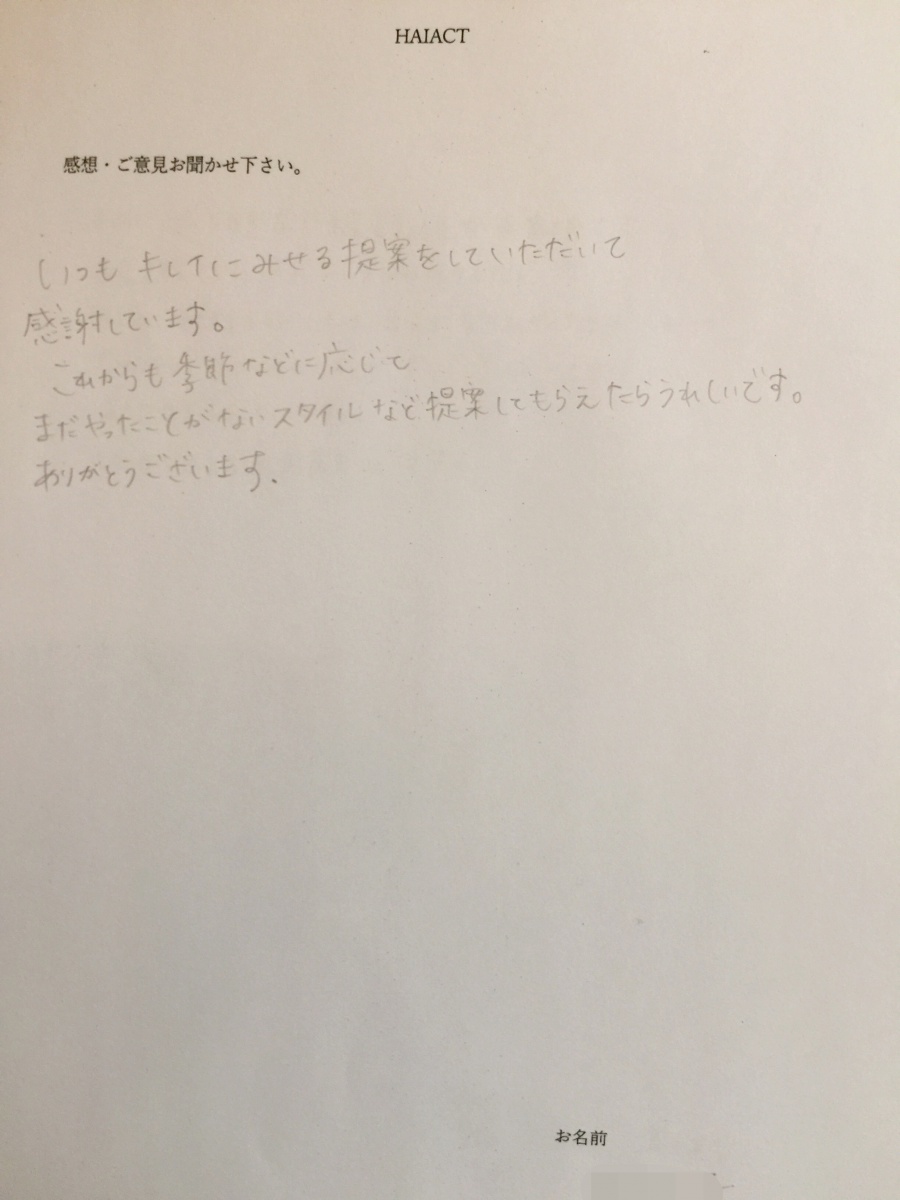 HAIACT
感想・ご意見お聞かせ下さい。
いつも キレイにみせる提案をしていただいて
感謝しています。
これからも季節などに応じて
まだやったことがないスタイルなど提案してもらえたらうれしいです。
ありがとうございます.
お名前